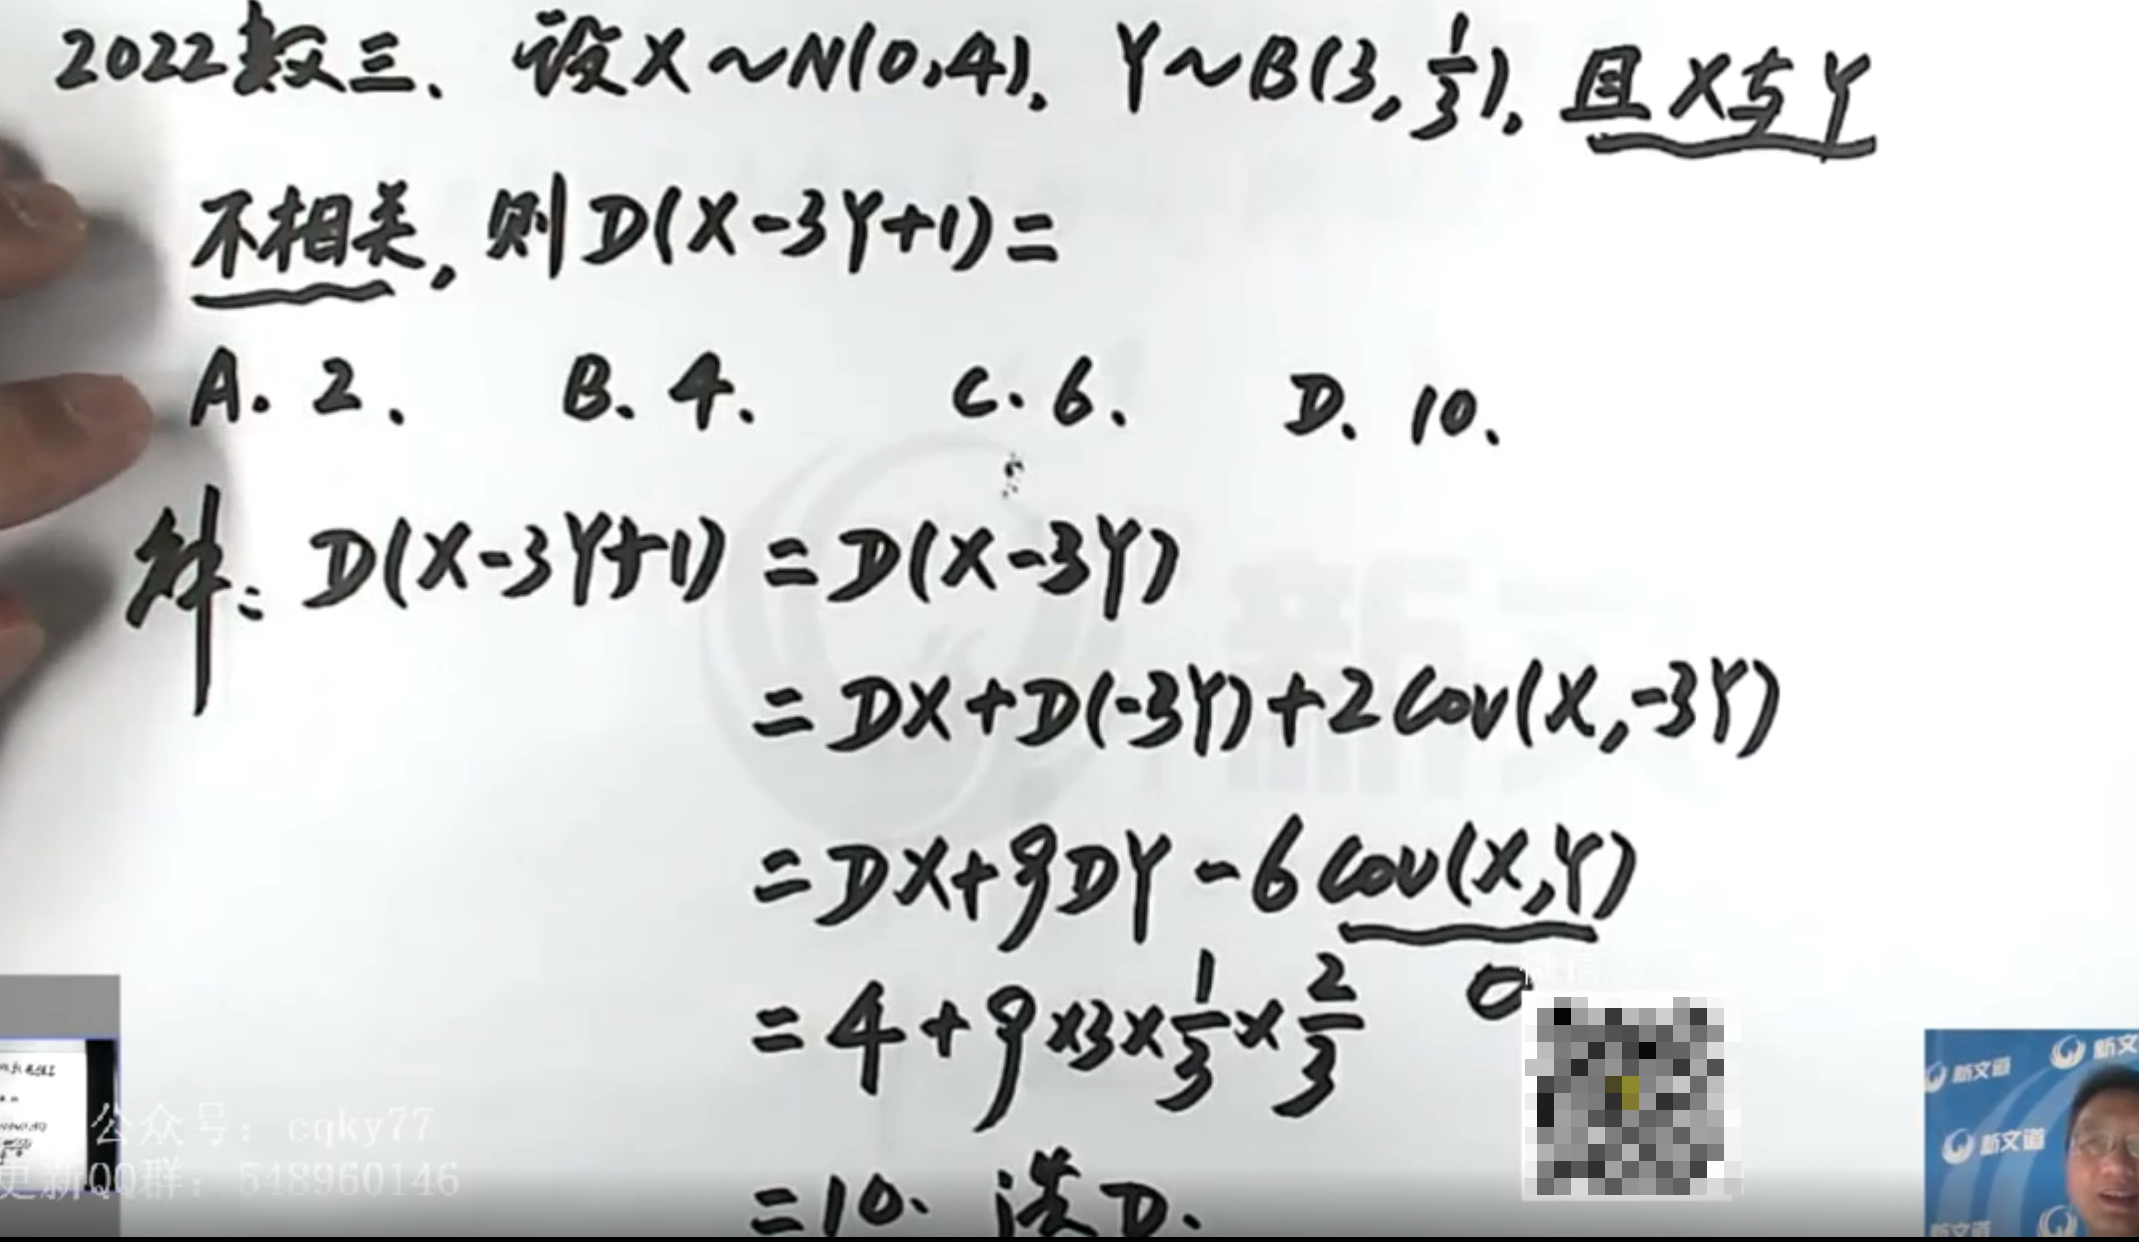 2022数三、设X~N(0,4)，Y~B(3,1/3)，且X与Y
不相关，则D(X-3Y+1)=
A. 2、 B、4、 C. 6、 D、10、
解: D(X-3Y+1) = D(X-3Y)
= DX+D(-3Y)+2Cov(X,-3Y)
= DX+9DY-6Cov(X,Y)
0
= 4+9×3×1/3×2/3
=10、选D、
公众号: cqky77
更新QQ群: 548960146
新文道
新文
新文道
新文道
新文